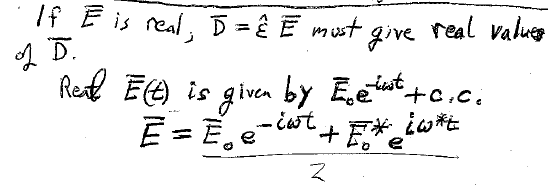 If E̅ is real, D̅ = ε̂ E̅ must give real values
of D̅.
Real E̅(t) is given by E̅₀e^{-iωt} + c.c.
E̅ = (E̅₀ e^{-iωt} + E̅₀* e^{iω*t}) / 2